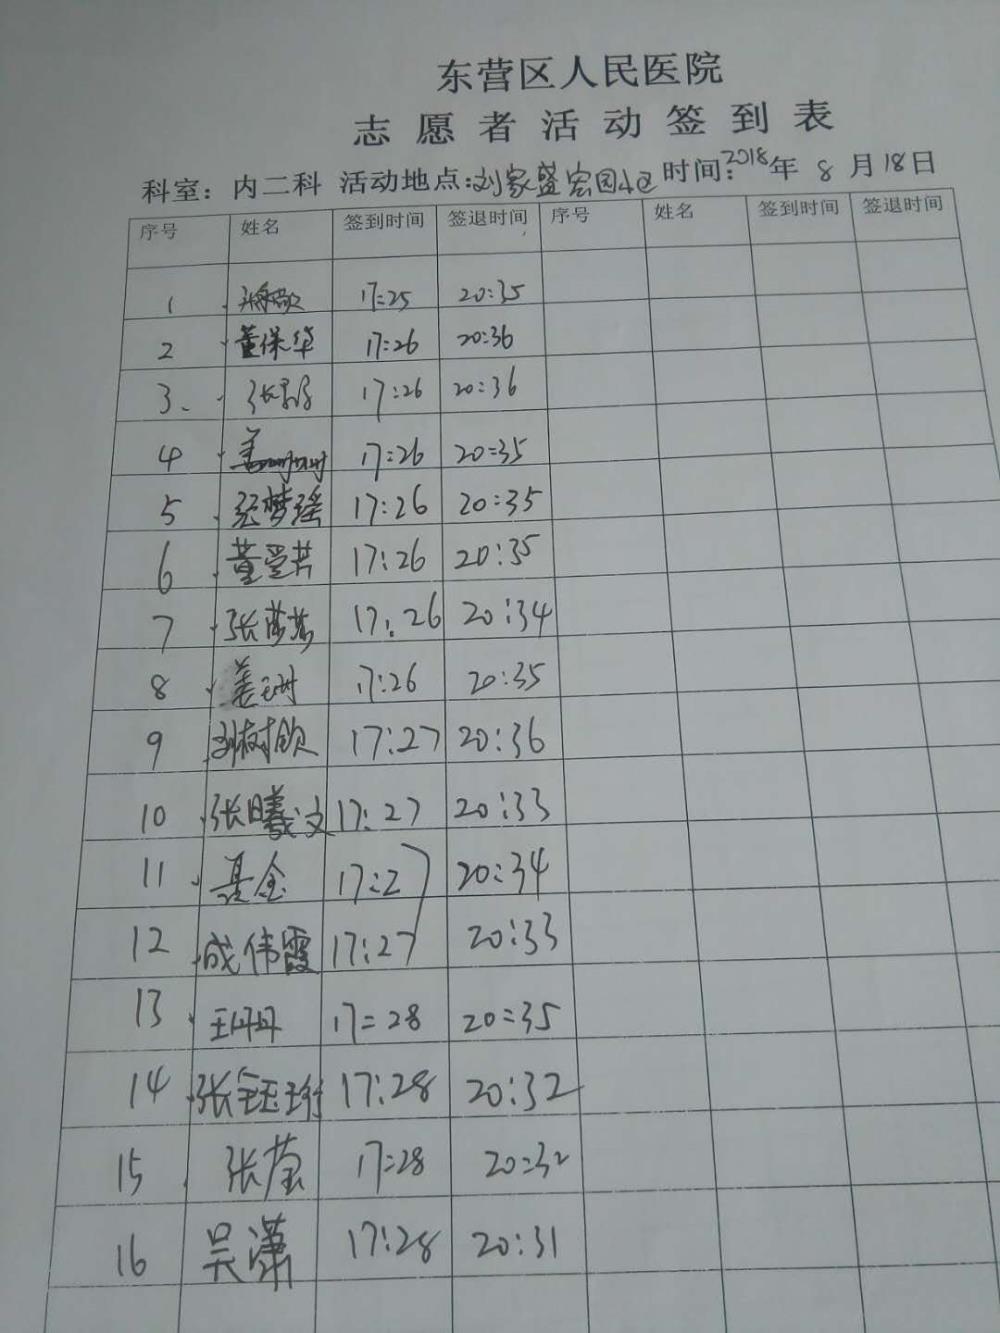 东营区人民医院
志愿者活动签到表
科室：内二科 活动地点：刘家盛宏园小区 时间：2018年8月18日
序号 姓名 签到时间 签退时间 序号 姓名 签到时间 签退时间
1 17:25 20:35
2 董保华 17:26 20:36
3、 17:26 20:36
4 17:26 20:35
5 梦瑶 17:26 20:35
6 董爱芳 17:26 20:35
7 张 17:26 20:34
8 姜 17:26 20:35
9 刘树钦 17:27 20:36
10 张曦文 17:27 20:33
11 17:27 20:34
12 成伟霞 17:27 20:33
13 王丹丹 17:28 20:35
14 张钰珩 17:28 20:32
15 张莹 17:28 20:32
16 吴潇 17:28 20:31